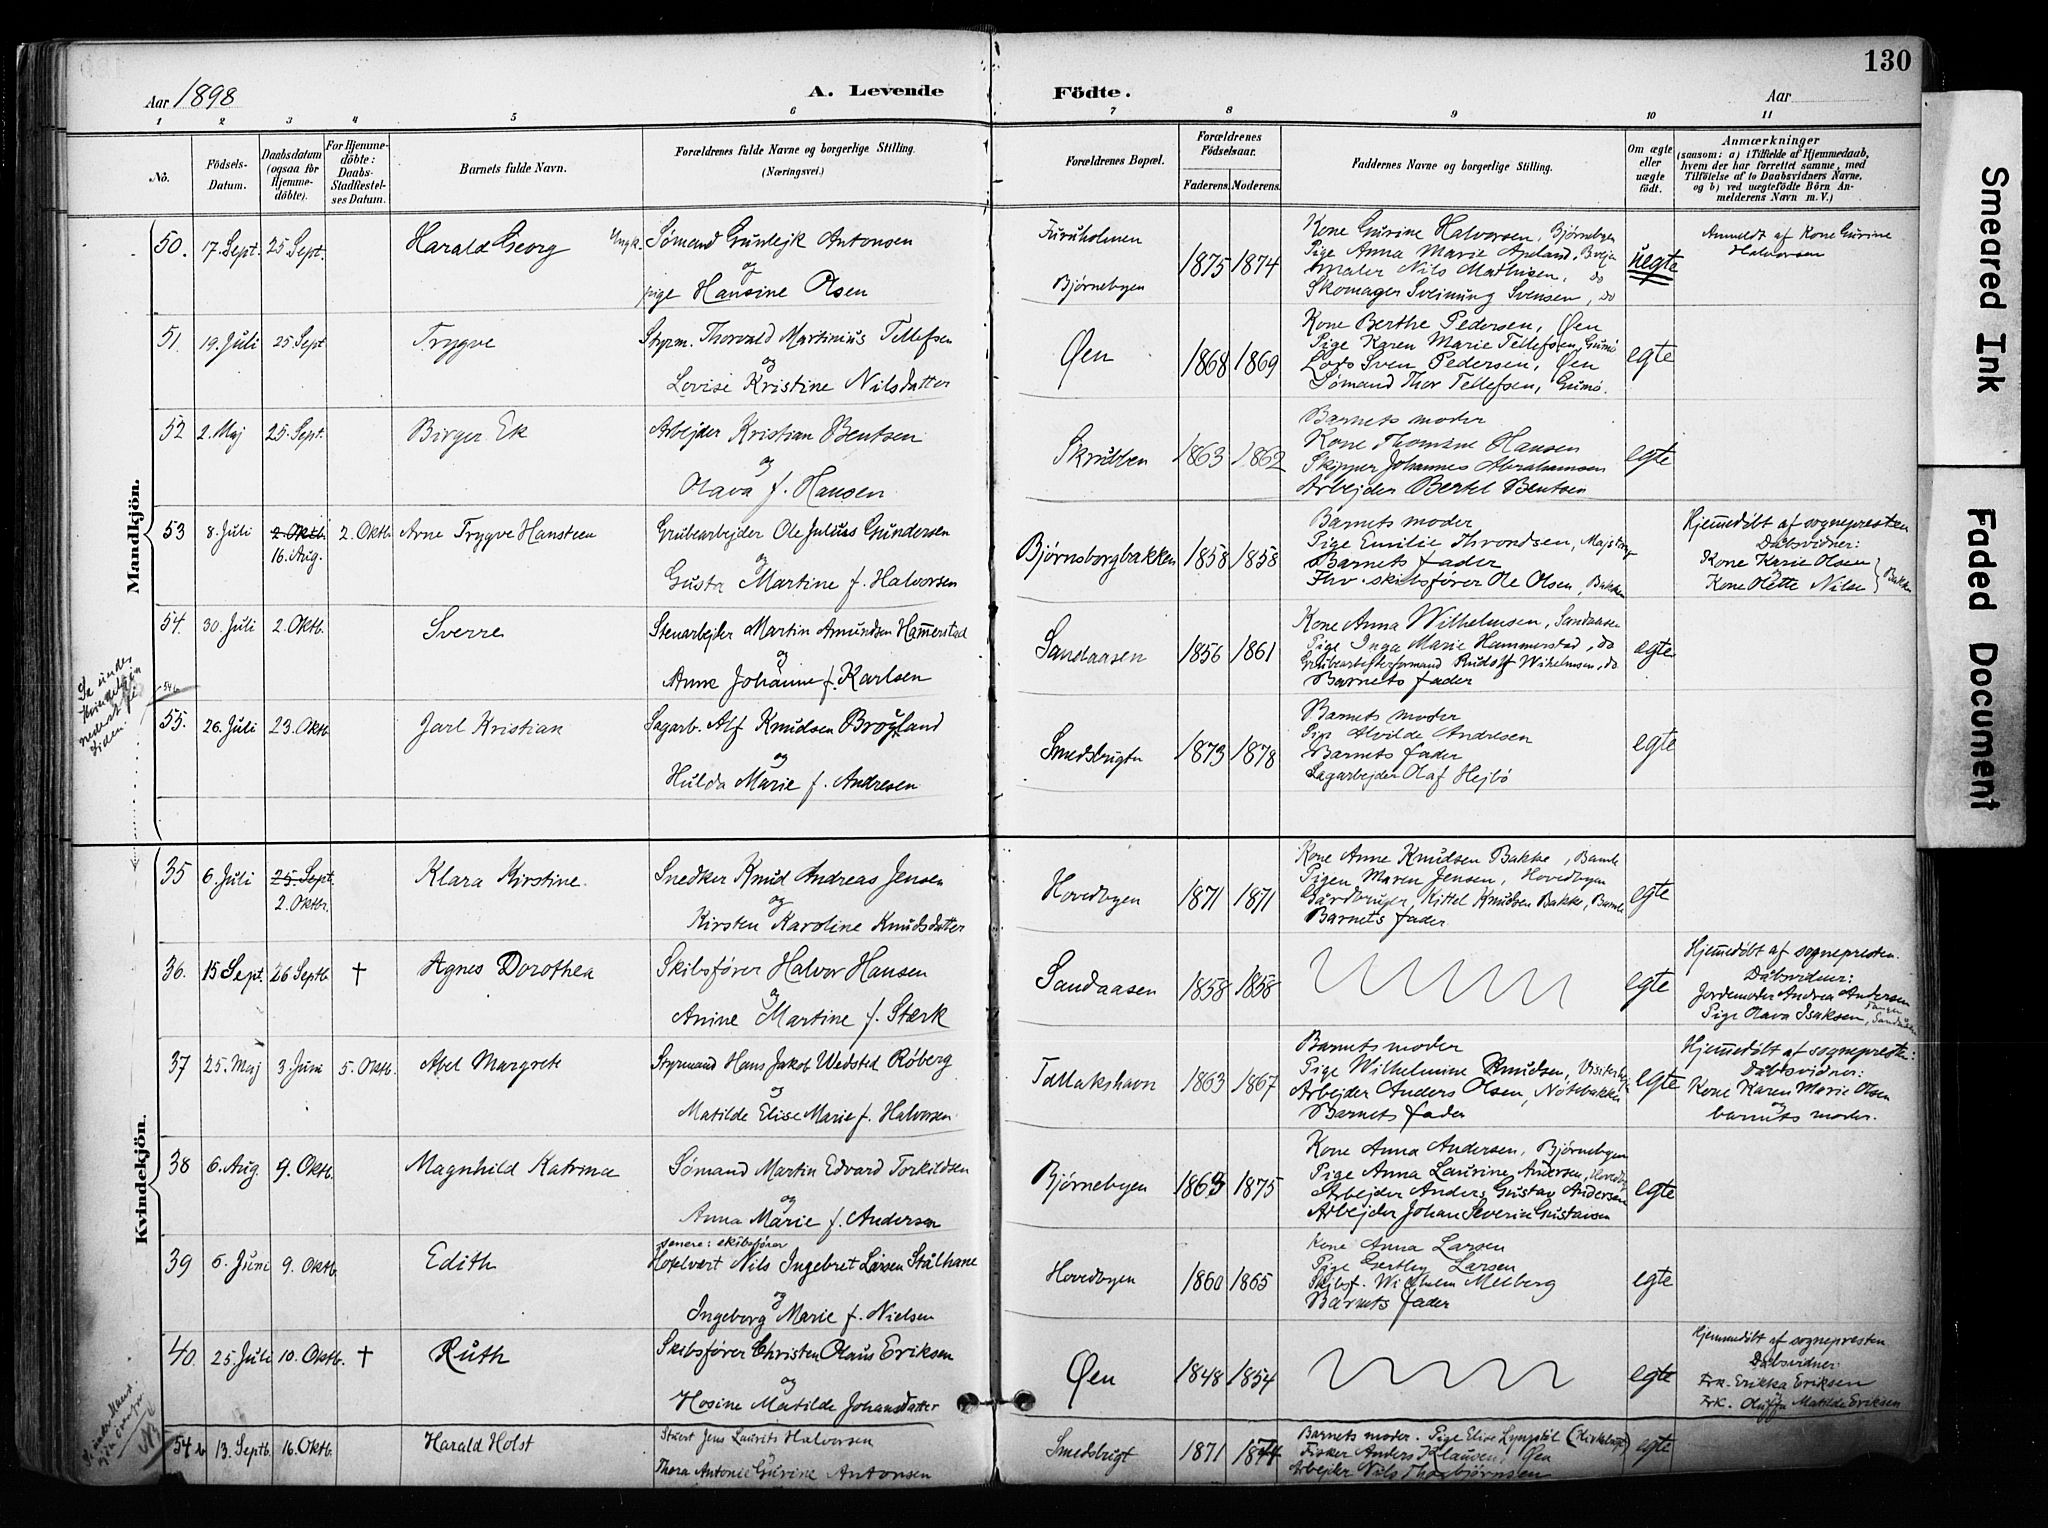 130
Aar 1898
A. Levende Födte.
Aar
1 2 3 4 5 6 7 8 9 10 11
No.
Födsels-Datum.
Daabsdatum (ogsaa for Hjemme-döbte).
For Hjemme-döbte: Daabs-Stadfæstel-ses Datum.
Barnets fulde Navn.
Forældrenes fulde Navne og borgerlige Stilling.
(Næringsvei.)
Forældrenes Bopæl.
Forældrenes Födselsaar.
Faderens. Moderens.
Faddernes Navne og borgerlige Stilling.
Om ægte eller uægte födt.
Anmærkninger
(saasom: a) i Tilfælde af Hjemmedaab,
hvem der har forrettet samme, med
Tilföielse af to Daabsvidners Navne,
og b) ved uægtefödte Börn An-
melderens Navn m. V.)
Mandkjön.
50. 17. Sept. 25 Sept. Harald Georg
Ungk. Sømand Gunlejk Antonsen
og
pige Hansine Olsen
Furuholmen
Bjørnebyen
1875 1874
Kone Gurine Halvorsen, Bjørnebyen
Pige Anna Marie Apeland,
Maler Nils Mathisen, do
Skomager Sveinung Svensen, do
uegte
Anmeldt af Kone Gurine
Halvorsen
51. 19. Juli 25 Sept Trygve
Styrm. Thorvald Martinius Tellefsen
og
Lovise Kristine Nilsdatter
Øen
1868 1869
Kone Berthe Pedersen, Øen
Pige Karen Marie Tellefsen, Gumø
Lods Sven Pedersen, Øen
Sømand Thor Tellefsen, Gumø.
egte
52 2. Maj 25. Sept. Birger Ek
Arbejder Kristian Bentsen
og
Olava f. Hansen
Skrubben
1863 1862
Barnets moder
Kone Thomine Hansen
Skipper Johannes Abrahamsen
Arbejder Bertel Bentsen
egte
53 8. Juli 2. Oktb. 16. Aug. 2. Oktb. Arne Trygve Hansteen
Grubearbejder Ole Julius Gundersen
og
Gusta Martine f. Halvorsen
Bjørnsborgbakken
1858 1858
Barnets moder
Pige Emilie Throndsen,
Barnets fader
Fhv. skibsfører Ole Olsen, Bakken
Hjemmedøbt af sognepresten
Dåbsvidner:
Kone Karie Olsen
og
Kone Olette Nilsen } Bakken
54. 30. Juli 2. Oktb. Sverre
Stenarbejder Martin Amundsen Hamerstad
og
Anne Johanne f. Karlsen
Sandaasen
1856 1861
Kone Anna Wilhelmsen, Sandaasen
Pige Inga Marie Hammerstad, do
Grubearbejderformand Rudolf Wilhelmsen, do
Barnets fader
egte
Se under
Kvindekjøn
nederst på
siden
54b
55. 26. Juli 23. Oktb Jarl Kristian
Sagarb. Alf Knudsen Brøyland
og
Hulda Marie f. Andresen
Smedsbugtn
1873 1878
Barnets moder
Pige Alvilde Andresen
Barnets fader
Sagarbejder Olaf Hejbø
egte
Kvindekjön.
35 6. Juli 25. Sept. 2. Oktbr. Klara Kirstine.
Snedker Knud Andreas Jensen
og
Kirsten Karoline Knudsdatter
Hovedbyen
1871 1871
Kone Anne Knudsen Bakke, Bamle
Pigen Maren Jensen, Hovedbyen
Gårdbruger Kittel Knudsen Bakke, Bamle
Barnets fader
egte
36. 15 Sept. 26 Septb. † Agnes Dorothea
Skibsfører Halvor Hansen
og
Anine Martine f. Stærk
Sandaasen
1858 1858
egte
Hjemmedøbt af sognepresten.
Dåbsvidner:
Jordemoder Andrea Andersen
Pige Olava Isaksen,
37 25. Maj 3. Juni 5. Oktb. Abel Margrete
Styrmand Hans Jakob Wedsted Røberg
og
Matilde Elise Marie f. Halvorsen
Tallakshavn
1863 1867
Barnets moder
Pige Wilhelmine Knudsen,
Arbejder Anders Olsen, Nøtbakken
Barnets fader
egte
Hjemmedøbt af sognepresten:
Dåbsvidner:
Kone Karen Marie Olsen
og
barnets moder.
38 6. Aug. 9. Oktb. Magnhild Katrina
Sømand Martin Edvard Torkildsen
og
Anna Marie f. Andersen
Bjørnebyen
1863 1875
Kone Anna Andersen, Bjørnebyen
Pige Anna Laurine Andersen, Hovedby
Arbejder Anders Gustav Andersen
Arbejder Johan Severin Gustavsen
egte
39 5. Juni 9. Oktb Edith
senere: skibsfører
Hotelvert Nils Ingebret Larsen Stålhane
og
Ingeborg Marie f. Nielsen
Hovedbyen
1860 1865
Kone Anna Larsen
Pige Larsen
Skibsf. Wilhelm Melberg
Barnets fader
egte
40. 25. Juli 10. Oktb. † Ruth
Skibsfører Christen Olaus Eriksen
og
Hosine Matilde Johansdatter
Øen
1848 1854
egte
Hjemmedøbt af sognepresten
Dåbsvidner
Frk. Erikka Eriksen
Frk. Oluffa Matilde Eriksen
54b 13. Septb. 16. Oktb. Harald Holst
Stuert Jens Laurits Halvorsen
Thora Antonie Gurine Antonsen
Smedsbugt
1871 1874
Barnets moder. Pige Elise Lyngstøl
Fisker Anders Klausen, Øen
Arbejder Nils Thorbjørnsen
egte
Smeared Ink
Faded Document